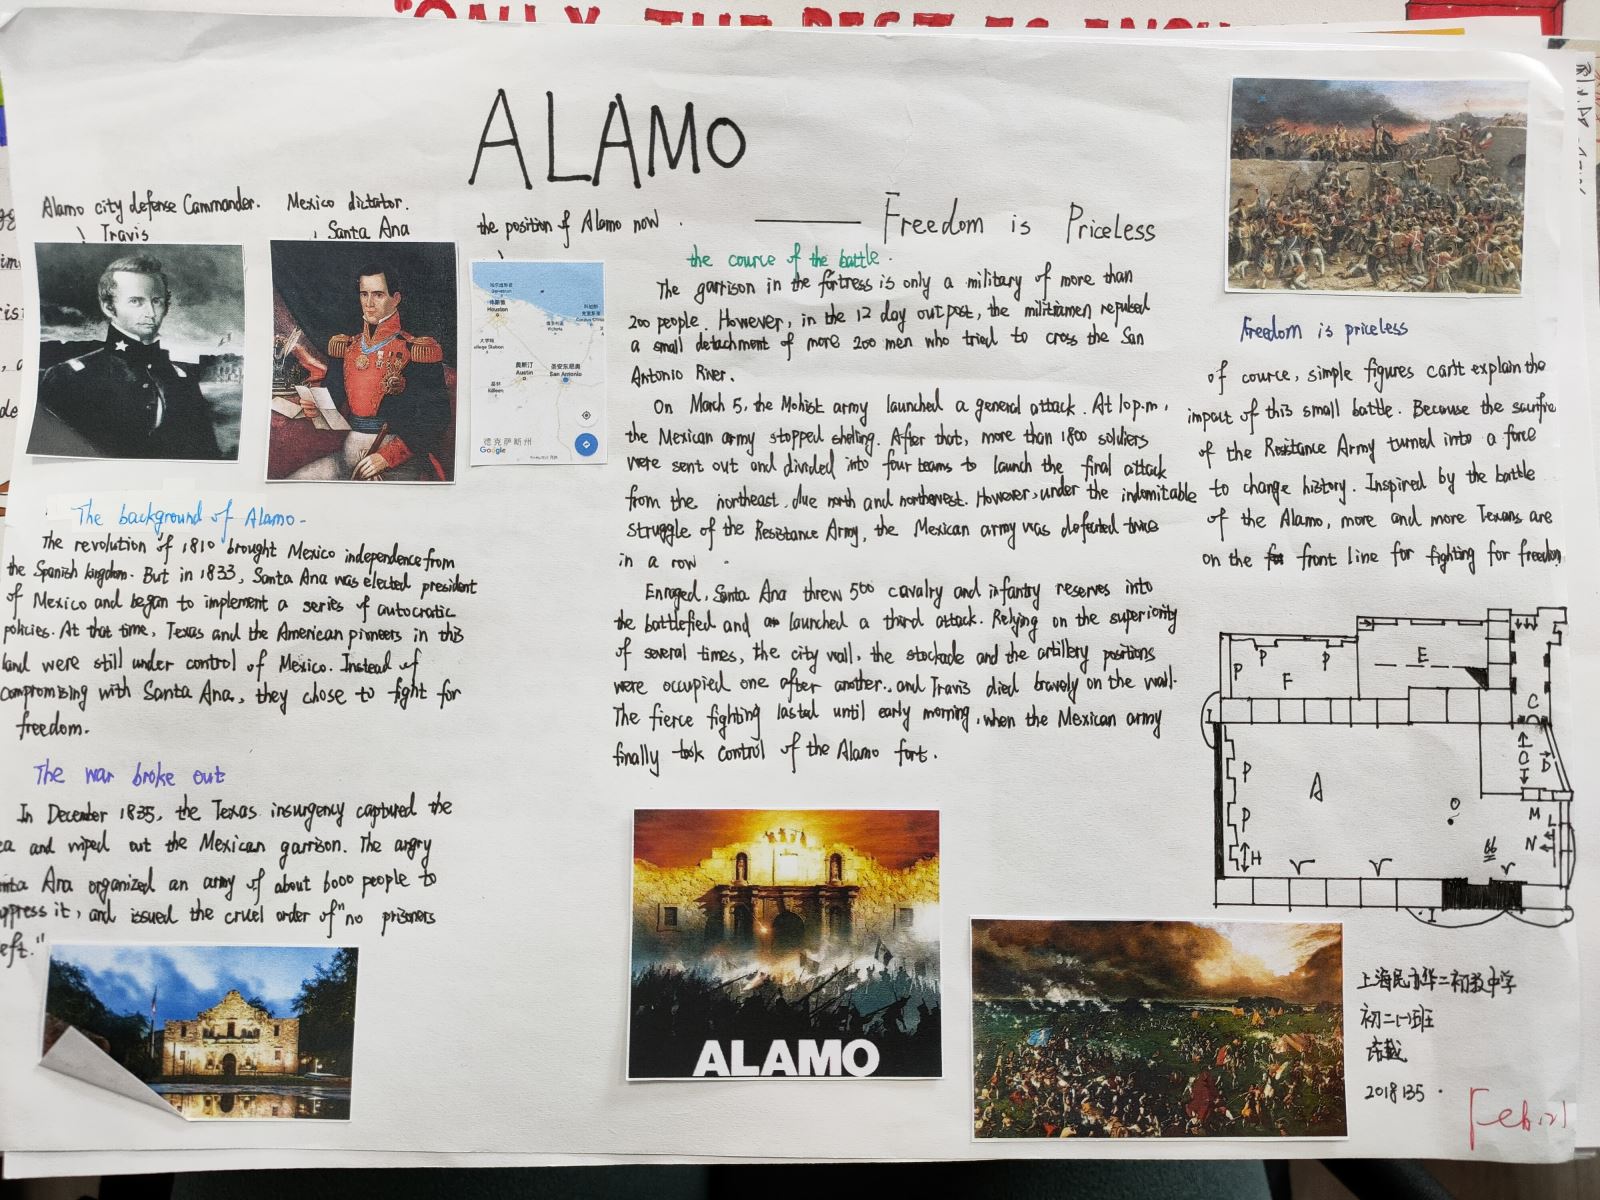 "ONLY THE BEST IS ENOU
ALAMO
Freedom is Priceless
Alamo city defense Cammander.
Travis
Mexico dictator.
Santa Ana
the position of Alamo now
休斯敦
Houston
Victoria
大学站
College Station
奥斯汀
Austin
圣安东尼奥
San Antonio
基林
Killeen
德克萨斯州
Google
The background of Alamo.
The revolution of 1810 brought Mexico independence from
the Spanish kingdom. But in 1833, Santa Ana was elected president
of Mexico and began to implement a series of autocratic
policies. At that time, Texas and the American pioneers in this
land were still under control of Mexico. Instead of
compromising with Santa Ana, they chose to fight for
freedom.
The war broke out
In December 1835, the Texas insurgency captured the
ea and wiped out the Mexican garrison. The angry
nta Ana organized an army of about 6000 people to
ppress it, and issued the cruel order of "no prisoners
eft."
the cource of the battle.
The garrison in the fortress is only a military of more than
200 people. However, in the 12 day outpost, the militiamen repulsed
a small detachment of more 200 men who tried to cross the San
Antonio River.
On March 5, the Mohist army launched a general attack. At 10 p.m,
the Mexican army stopped sheling. After that, more than 1800 soldiers
were sent out and divided into four teams to launch the final attack
from the northeast, due north and northwest. However, under the indomitable
struggle of the Resistance Army, the Mexican army was defected twice
in a row.
Enraged, Santa Ana threw 500 cavalry and infantry reserves into
the battlefied and launched a third attack. Relying on the superiority
of several times, the city wall, the stockade and the artillery positions
were occupied one after another, and Travis died bravely on the wall.
The fierce fighting lasted until early morning, when the Mexican army
finally took control of the Alamo fort.
ALAMO
Freedom is priceless
of cource, simple figures can't explain the
impact of this small battle. Because the sacrifice
of the Resistance Army turned into a force
to change history. Inspired by the battle
of the Alamo, more and more Texans are
on the front line for fighting for freedom
P P P F E
C
I
P A D
P O M
H N
I
上海民办华二初级中学
初二(一)班
2018135
Feb.21